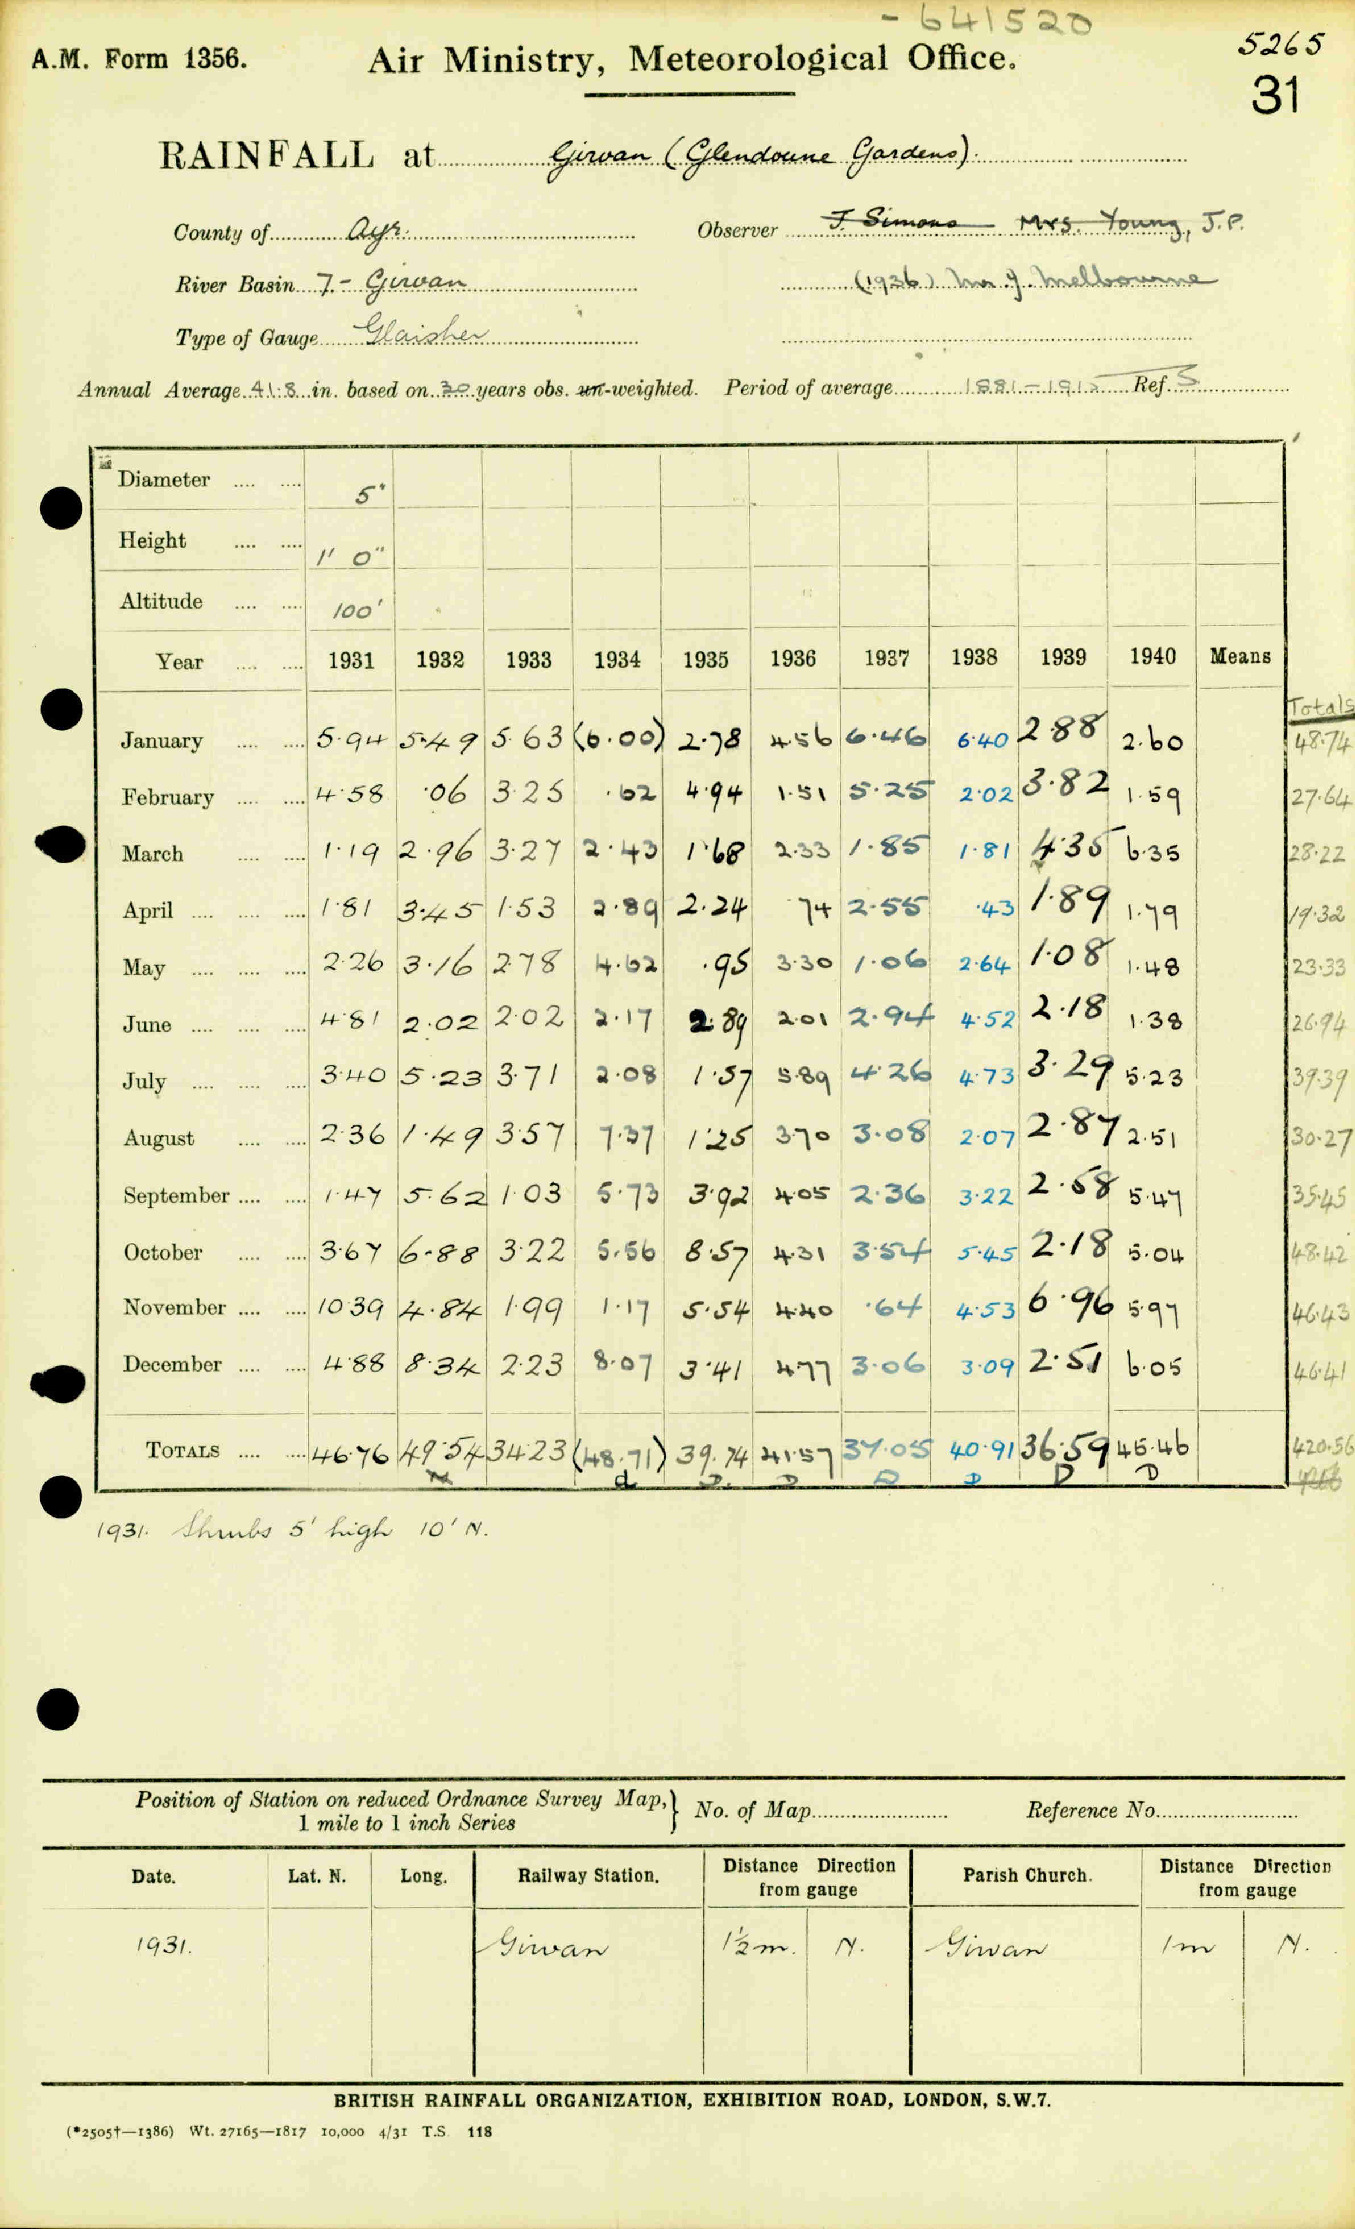 - 641520
A.M. Form 1356. Air Ministry, Meteorological Office. 5265
31
RAINFALL at Girvan (Glendoune Gardens).
County of Ayr. Observer J. Simons Mrs. Young, J.P.
River Basin 7 - Girvan (1936) Mr J. Melbourne
Type of Gauge Glaisher
Annual Average 41.8 in. based on 30 years obs. un-weighted. Period of average 1881-1915 Ref. S
Diameter .... .... 5"
Height .... .... 1' 0"
Altitude .... .... 100'
Year .... .... 1931 1932 1933 1934 1935 1936 1937 1938 1939 1940 Means
Totals
January .... .... 5.94 5.49 5.63 (6.00) 2.78 4.56 6.46 6.40 2.88 2.60 48.74
February .... .... 4.58 .06 3.25 .62 4.94 1.51 5.25 2.02 3.82 1.59 27.64
March .... .... 1.19 2.96 3.27 2.43 1.68 2.33 1.85 1.81 4.35 6.35 28.22
April .... .... .... 1.81 3.45 1.53 2.89 2.24 74 2.55 .43 1.89 1.79 19.32
May .... .... .... 2.26 3.16 2.78 4.62 .95 3.30 1.06 2.64 1.08 1.48 23.33
June .... .... .... 4.81 2.02 2.02 2.17 2.89 2.01 2.94 4.52 2.18 1.38 26.94
July .... .... .... 3.40 5.23 3.71 2.08 1.57 5.89 4.26 4.73 3.29 5.23 39.39
August .... .... 2.36 1.49 3.57 7.37 1.25 3.70 3.08 2.07 2.87 2.51 30.27
September .... .... 1.47 5.62 1.03 5.73 3.92 4.05 2.36 3.22 2.58 5.47 35.45
October .... .... 3.67 6.88 3.22 5.56 8.57 4.31 3.54 5.45 2.18 5.04 48.42
November .... .... 10.39 4.84 1.99 1.17 5.54 4.40 .64 4.53 6.96 5.97 46.43
December .... .... 4.88 8.34 2.23 8.07 3.41 4.77 3.06 3.09 2.51 6.05 46.41
TOTALS .... .... 46.76 49.54 34.23 (48.71) 39.74 41.57 37.05 40.91 36.59 45.46 420.56
d D. D D D D D
1931. Shrubs 5' high 10' N.
Position of Station on reduced Ordnance Survey Map, } No. of Map Reference No.
1 mile to 1 inch Series
Date. Lat. N. Long. Railway Station. Distance Direction from gauge Parish Church. Distance Direction from gauge
1931. Girvan 1½ m. N. Girvan 1m N.
BRITISH RAINFALL ORGANIZATION, EXHIBITION ROAD, LONDON, S.W.7.
(*2505†—1386) Wt. 27165—1817 10,000 4/31 T.S. 118